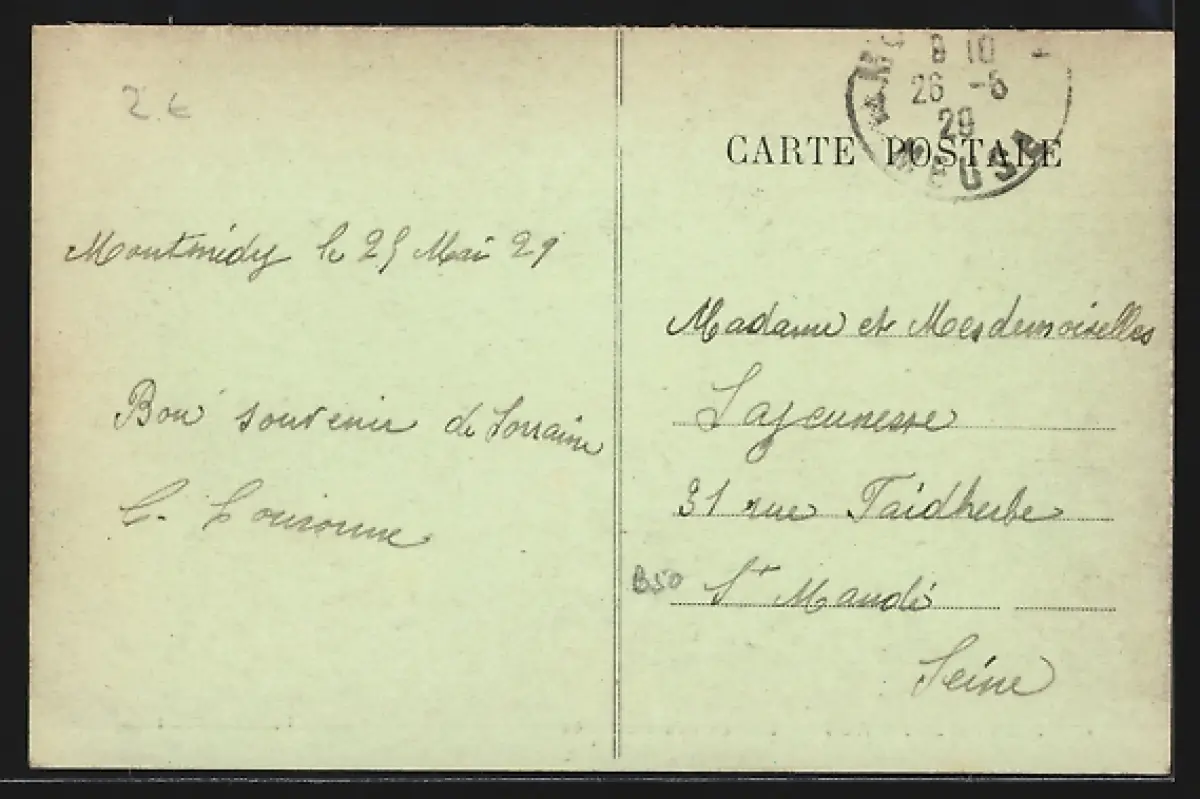 2.€
Montmédy le 25 Mai 29
Bon souvenir de Lorraine
8 10
26 -5
29
MEUSE
CARTE POSTALE
Madame et Mesdemoiselles
Lajeunesse
31 rue Faidherbe
B50 St Mandé
Seine